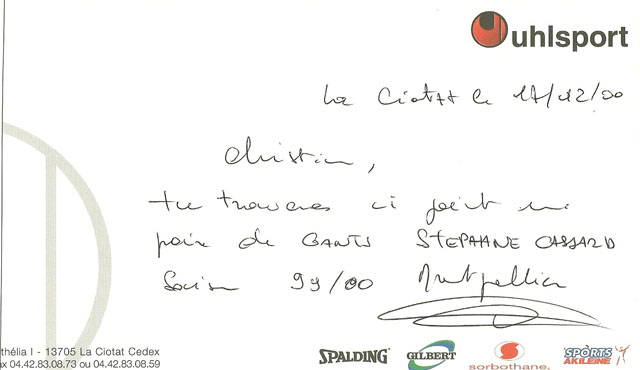 uhlsport
La Ciotat le 17/02/00
Christian,
tu trouveras ci joint une
paire de GANTS STEPHANE CASSARD
Saison 99/00 Montpellier
thélia I - 13705 La Ciotat Cedex
ax 04.42.83.08.73 ou 04.42.83.08.59
SPALDING GILBERT sorbothane. SPORTS AKILEINE